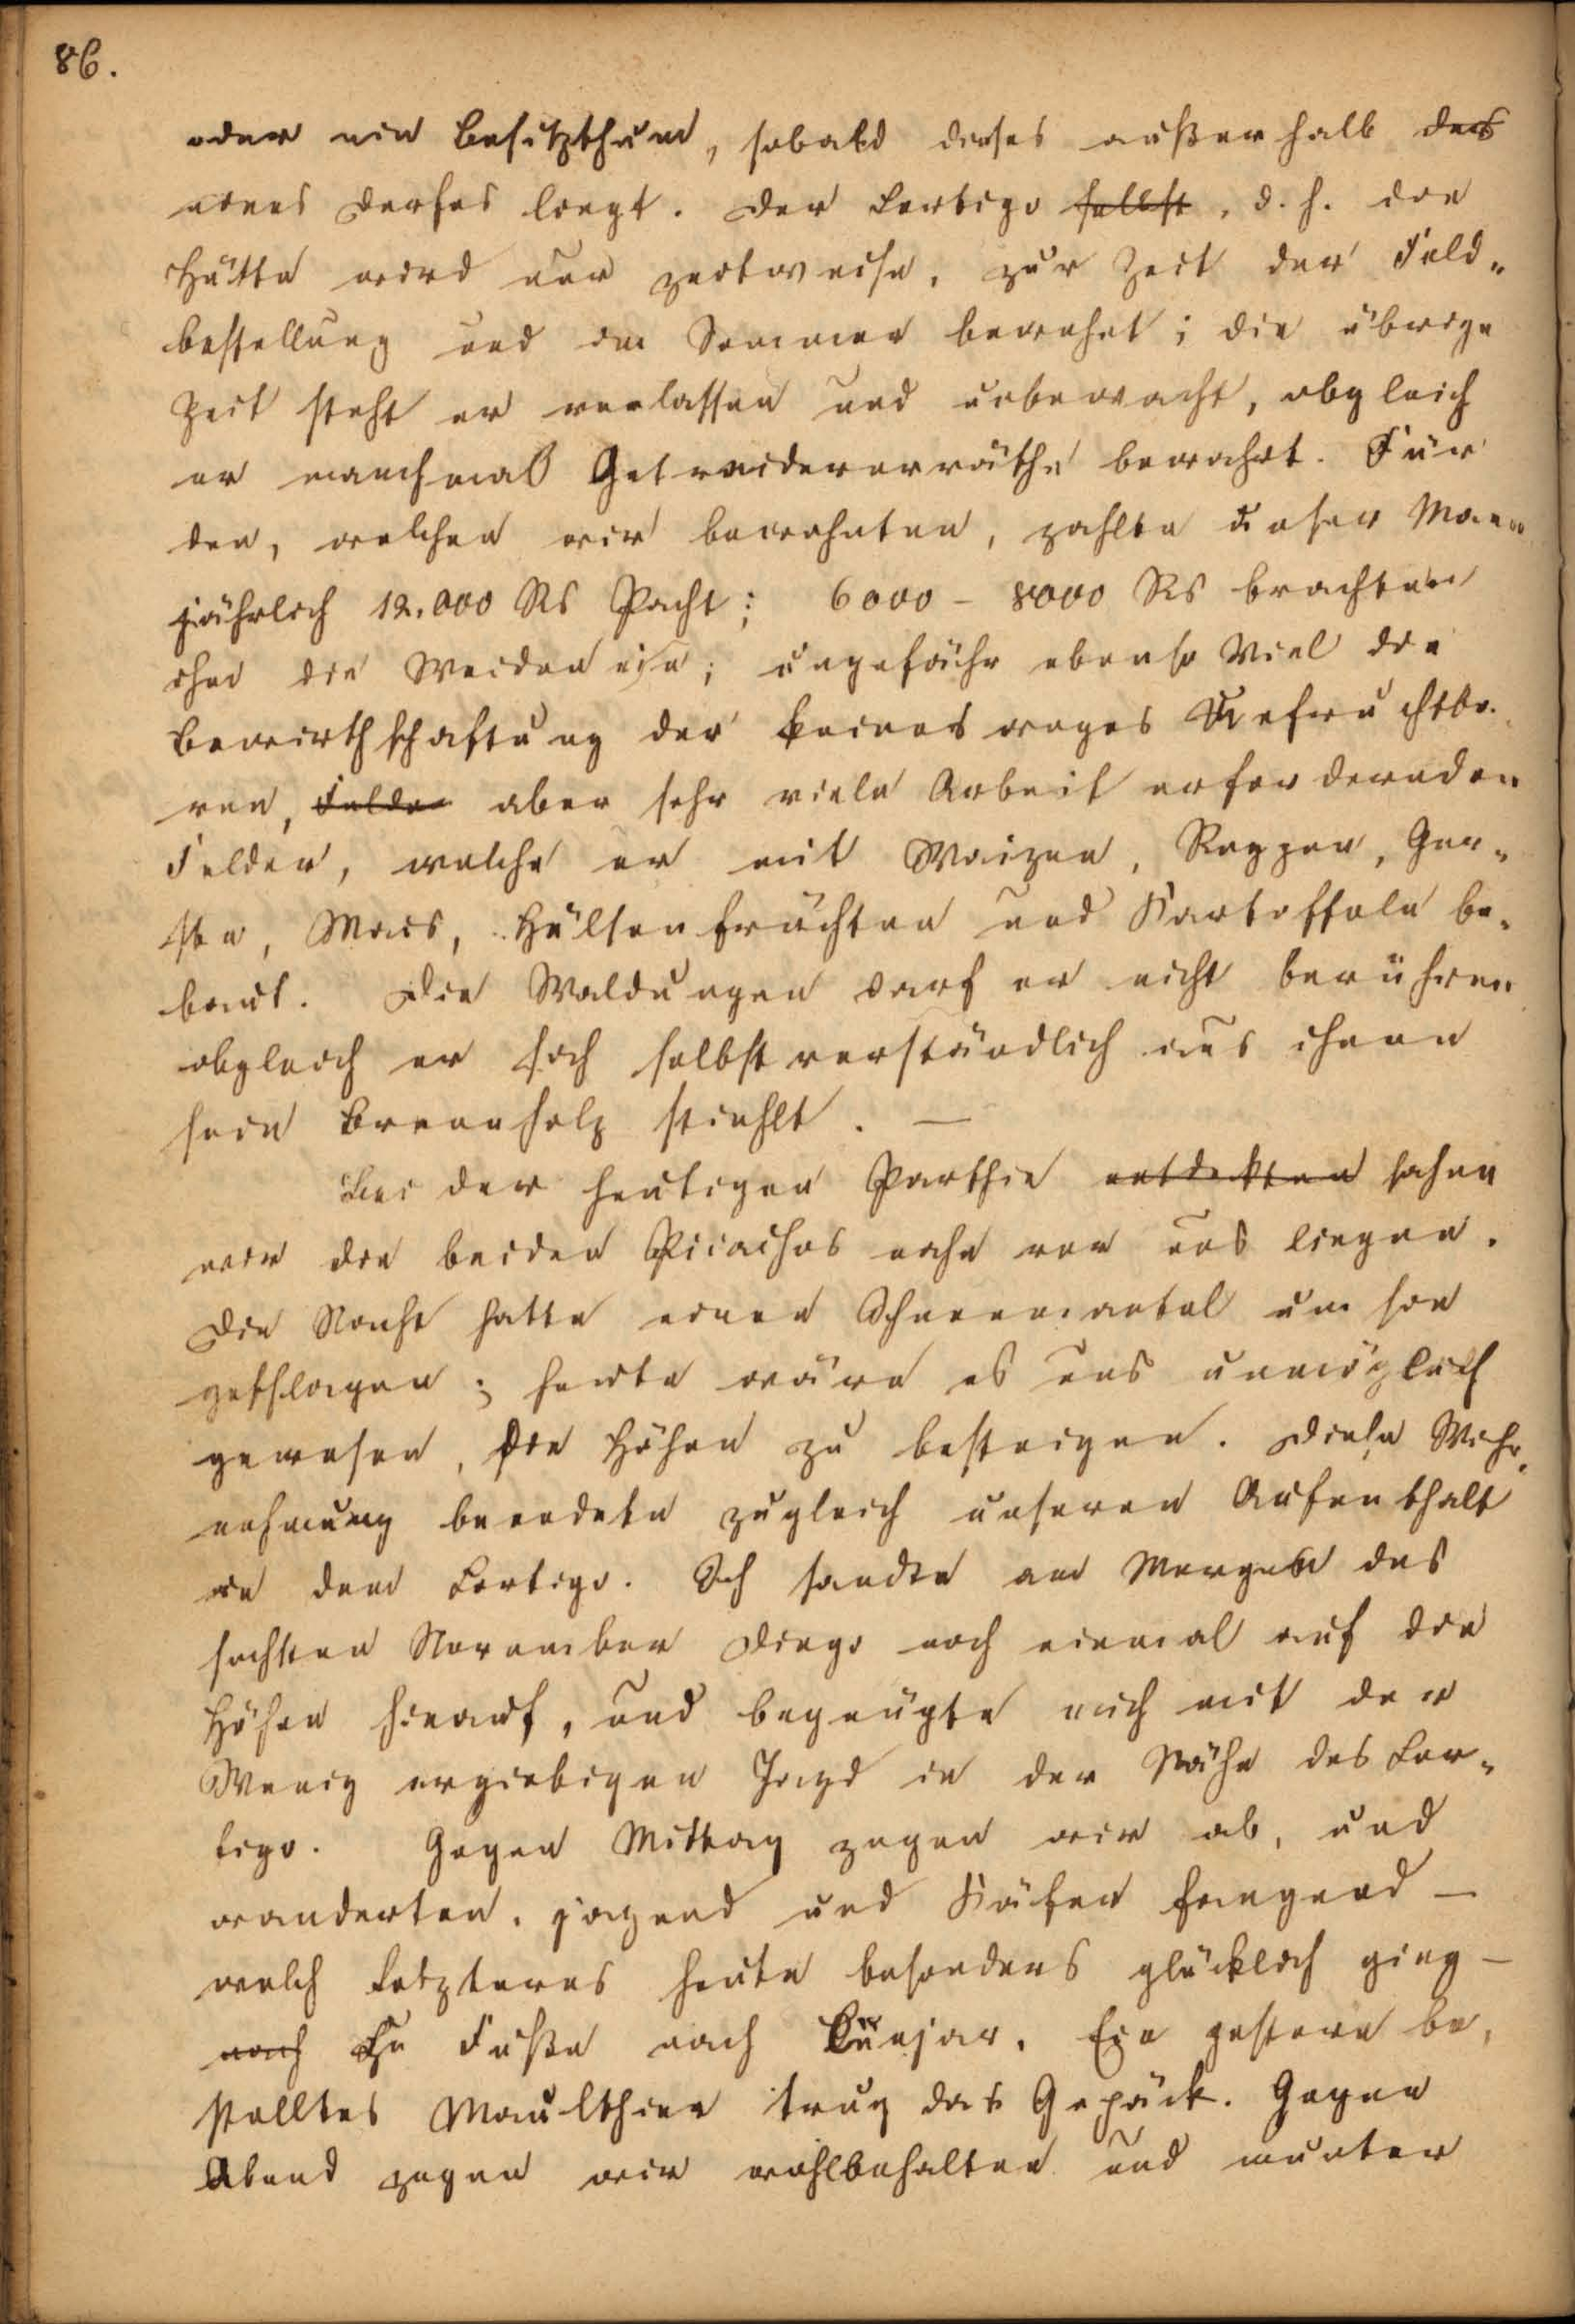 86.
oder ein Besitzthum, sobald dieses außerhalb des
eines Dorfes liegt. Der Cortigo selbst, d. h. die
Hütte wird nur zeitweise, zur Zeit der Feld-
bestellung und im Sommer bewohnt; die übrige
Zeit steht er verlassen und unbewacht, obgleich
er manchmal Getreidevorräthe bewahrt. Für
den, welchen wir bewohnten, zahlte unser Mann
jährlich 12.000 Rs Pacht; 6000 - 8000 Rs brachten
ihm die Weiden ein; ungefähr ebenso viel die
Bewirthschaftung der keineswegs Unfruchtba-
ren, Felder aber sehr viele Arbeit erfordernden
Felder, welche er mit Waizen, Roggen, Ger-
ste, Mais, Hülsenfrüchten und Kartoffeln be-
baut. Die Waldungen darf er nicht berühren
obgleich er sich selbstverständlich aus ihnen
sein Brennholz stiehlt. —
Bei der heutigen Parthie entdekten sahen
wir die beiden Picachos nahe vor uns liegen.
Die Nacht hatte einen Schneemantel um sie
geschlagen; heute wäre es uns unmöglich
gewesen, die Höhen zu besteigen. Diese Wahr-
nehmung beendete zugleich unseren Aufenthalt
in dem Cortigo. Ich sandte am Morgen des
sechsten November Diego noch einmal auf die
Höhen hinauf, und begnügte mich mit der
Wenig ergiebigen Jagd in der Nähe des Cor-
tigo. Gegen Mittag zogen wir ab, und
wanderten, jagend und Käfer fangend —
welch Letzteres heute besonders glücklich ging —
nach Zu Fuße nach Guejar. Ein gestern be-
stelltes Maulthier trug das Gepäck. Gegen
Abend zogen wir wohlbehalten und munter